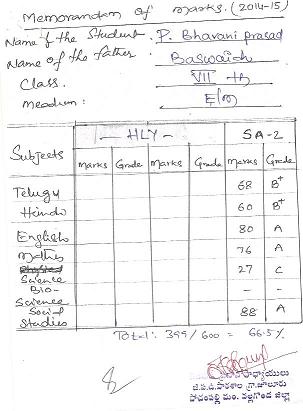 Memorandum of marks. (2014-15)
Name of the Student. P. Bhavani prasad
Name of the father. Baswaiah
Class. VII th
Meadium: E/M
Subjects - HLY - SA-2
Marks Grade Marks Grade Marks Grade
Telugu 68 B+
Hindi 60 B+
English 80 A
Maths 76 A
Science 27 C
Bio- - -
Science
Social 88 A
Studies
Total: 399/600 = 66.5%
8
జి.ప.ఉ.పాఠశాల గ్రా.జూలూరు
పోచంపల్లి మం. నల్లగొండ జిల్లా